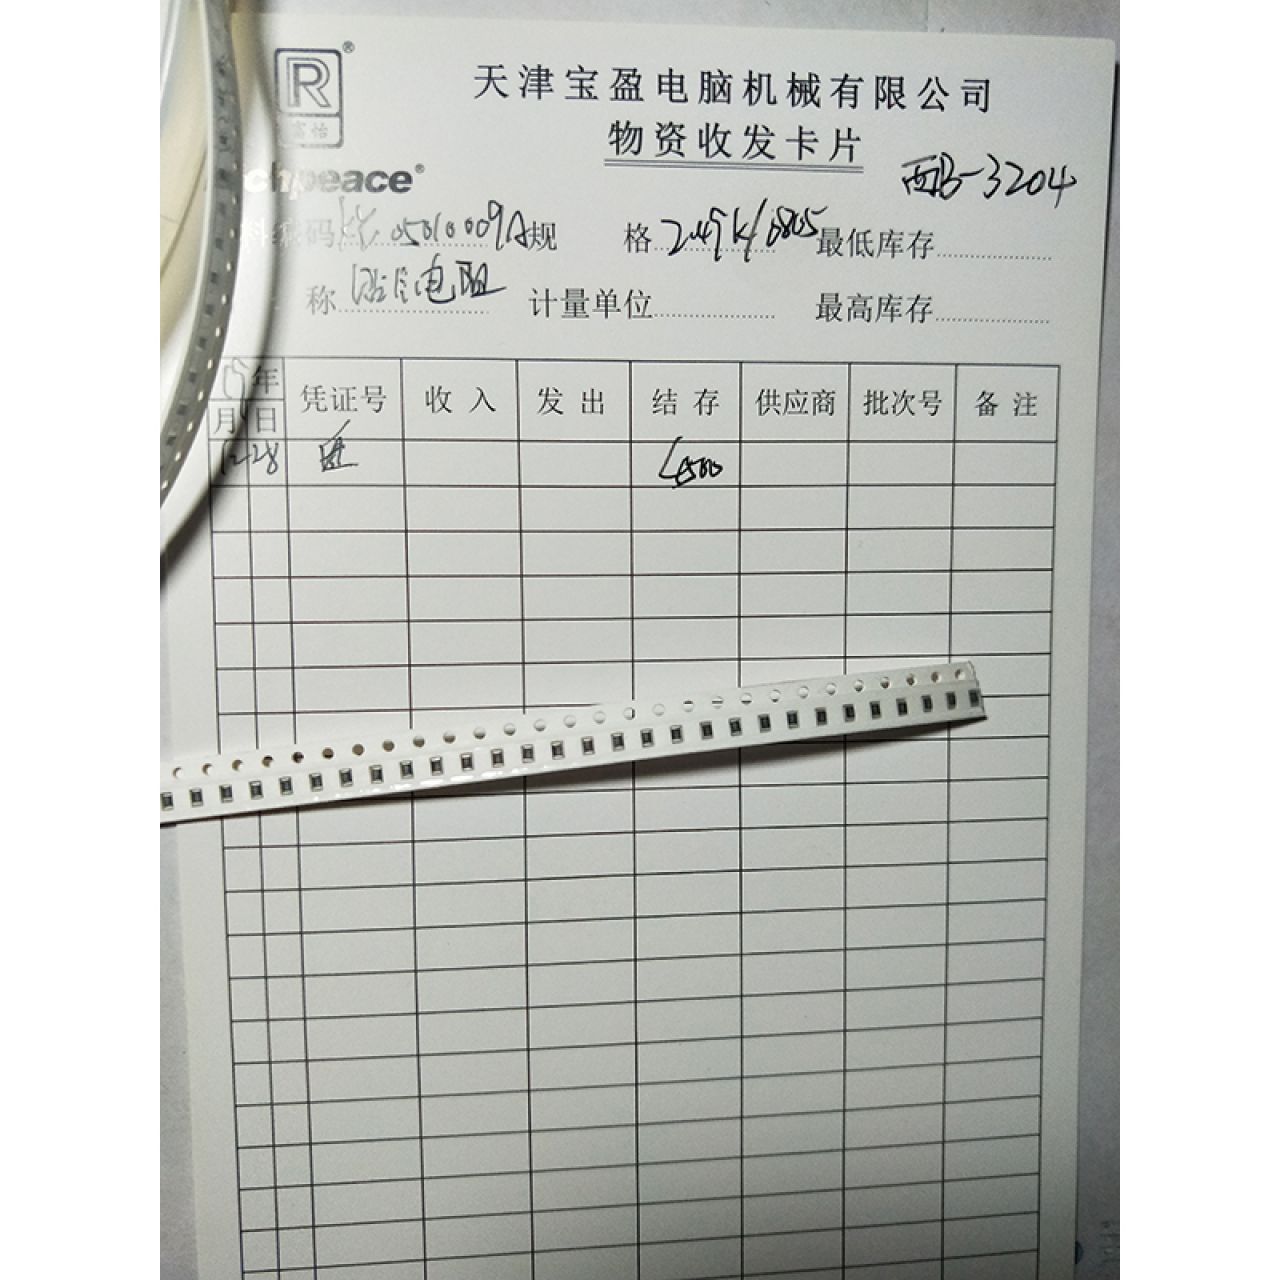 R®
富怡
天津宝盈电脑机械有限公司
物资收发卡片
西B-3204
chpeace®
料编码 05010009A 规 格 2.49K/0805 最低库存
称 贴片电阻 计量单位 最高库存
年 凭证号 收入 发出 结存 供应商 批次号 备注
月 日
12 28 4500